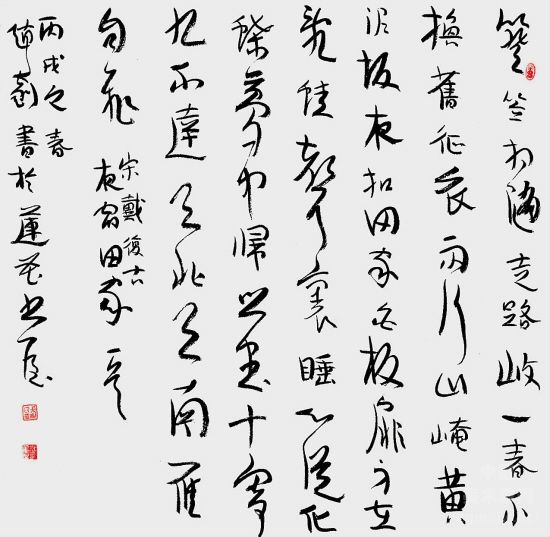 簦笠相隨走路岐一春不
換舊征衣雨行山崦黄
泥坂夜扣田家白板扉身在
亂蛙聲裏睡心從化
蝶夢中歸鄉書十寄
九不達天北天南雁
自飛
宋戴復古
夜宿田家一首
丙戌之春
書於蓮花書屋